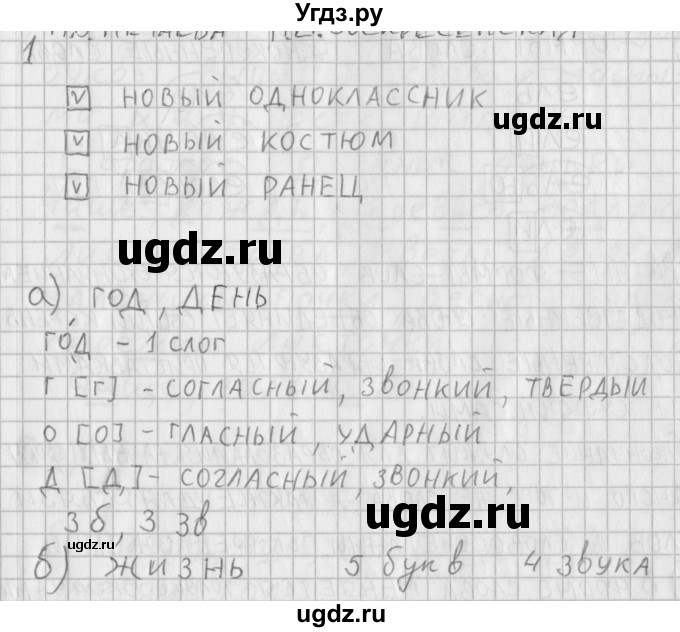 Угдз.ру
1
☑ НОВЫЙ ОДНОКЛАССНИК
ugdz.ru
☑ НОВЫЙ КОСТЮМ
☑ НОВЫЙ РАНЕЦ
ugdz.ru
а) ГОД, ДЕНЬ
ГО́Д - 1 СЛОГ
Г [Г] - СОГЛАСНЫЙ, ЗВОНКИЙ, ТВЕРДЫЙ
О [О] - ГЛАСНЫЙ, УДАРНЫЙ
Д [Д] - СОГЛАСНЫЙ, ЗВОНКИЙ,
3 б, 3 ЗВ
ugdz.ru
ugdz.ru
б) ЖИЗНЬ 5 букв 4 ЗВУКА
ugdz.ru